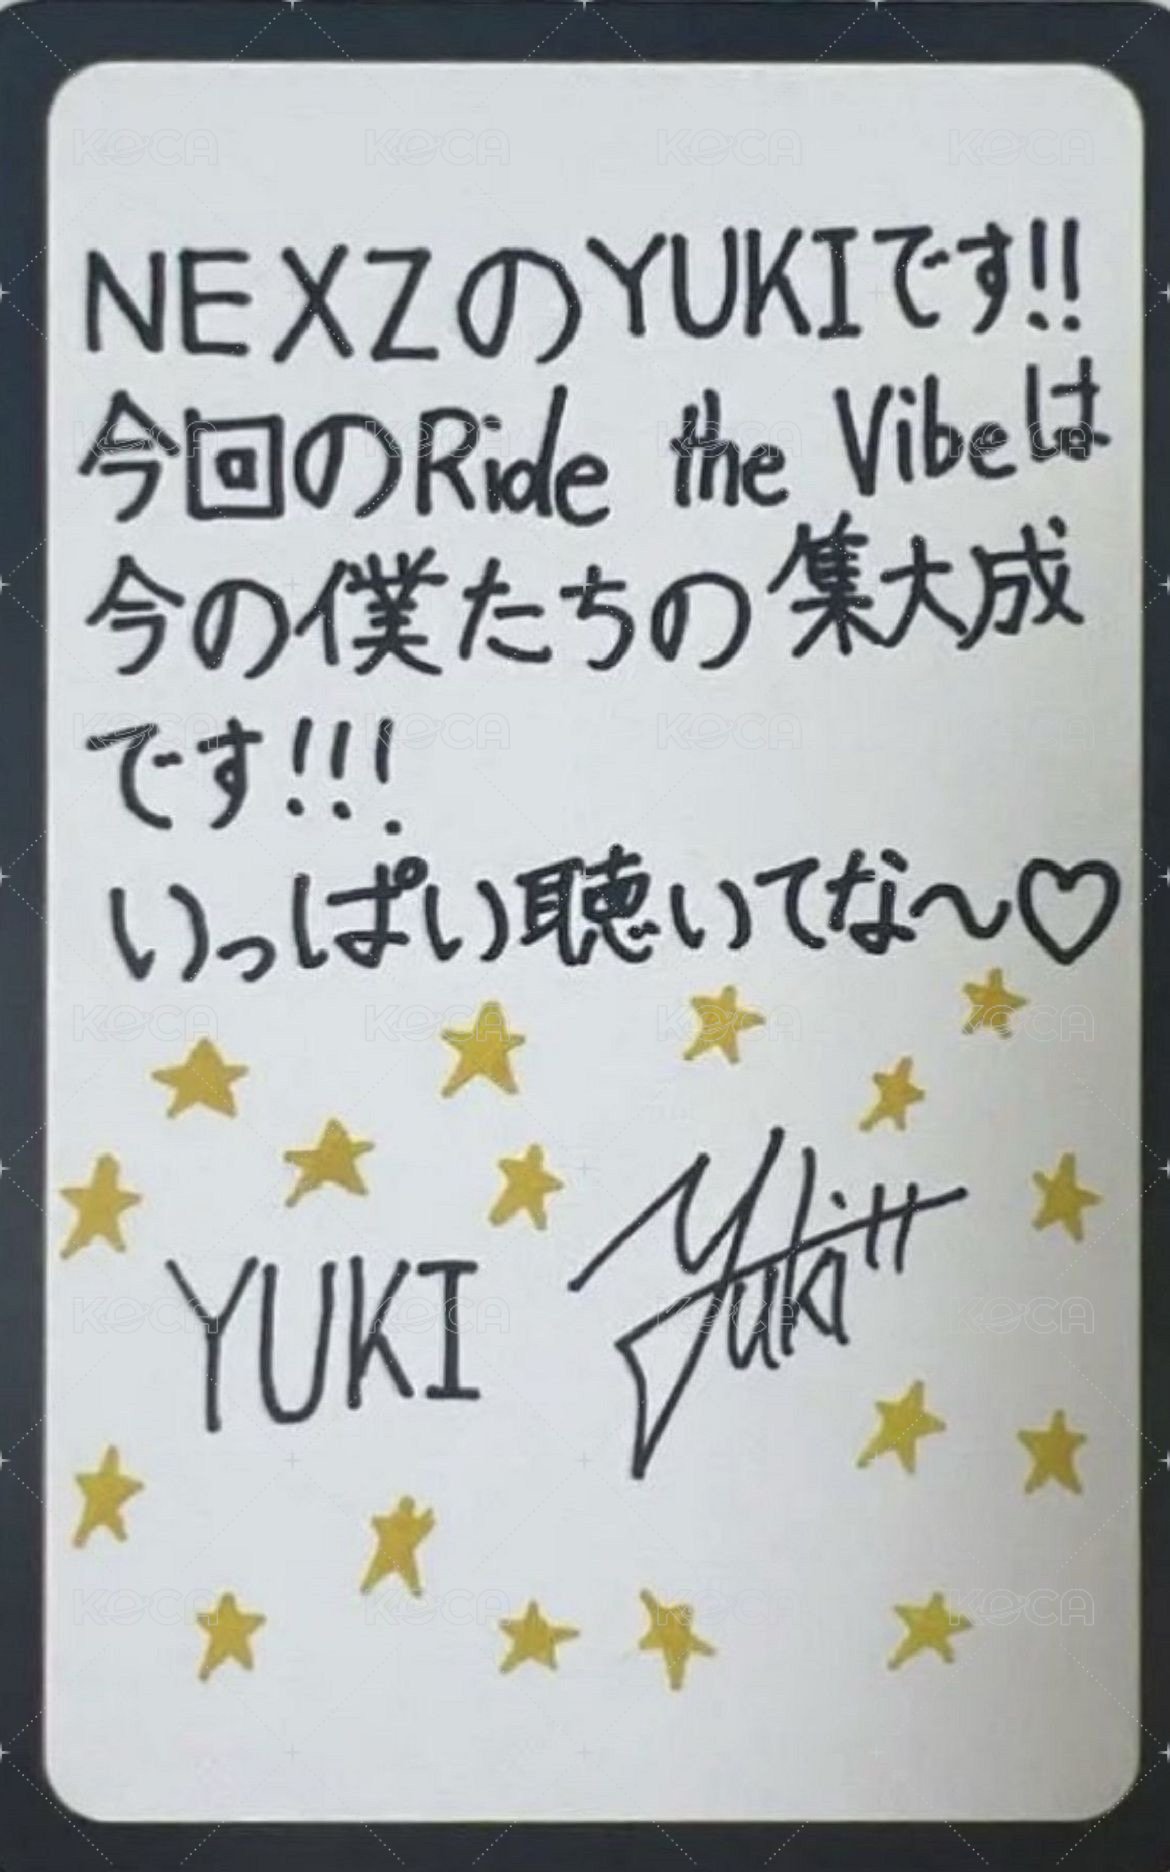 NEXZのYUKIです!!
今回のRide the Vibeは
今の僕たちの集大成
です!!!
いっぱい聴いてな〜♡
YUKI
Yuki
KOCA